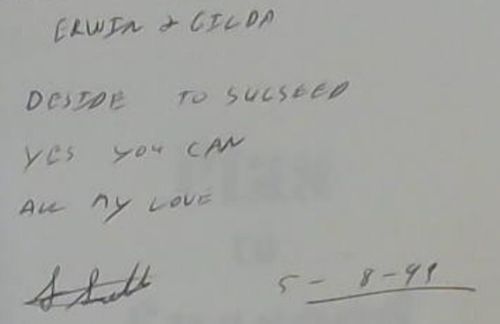 ERWIN & GILDA
DESIDE TO SUCSEED
YES YOU CAN
ALL MY LOVE
5-8-99